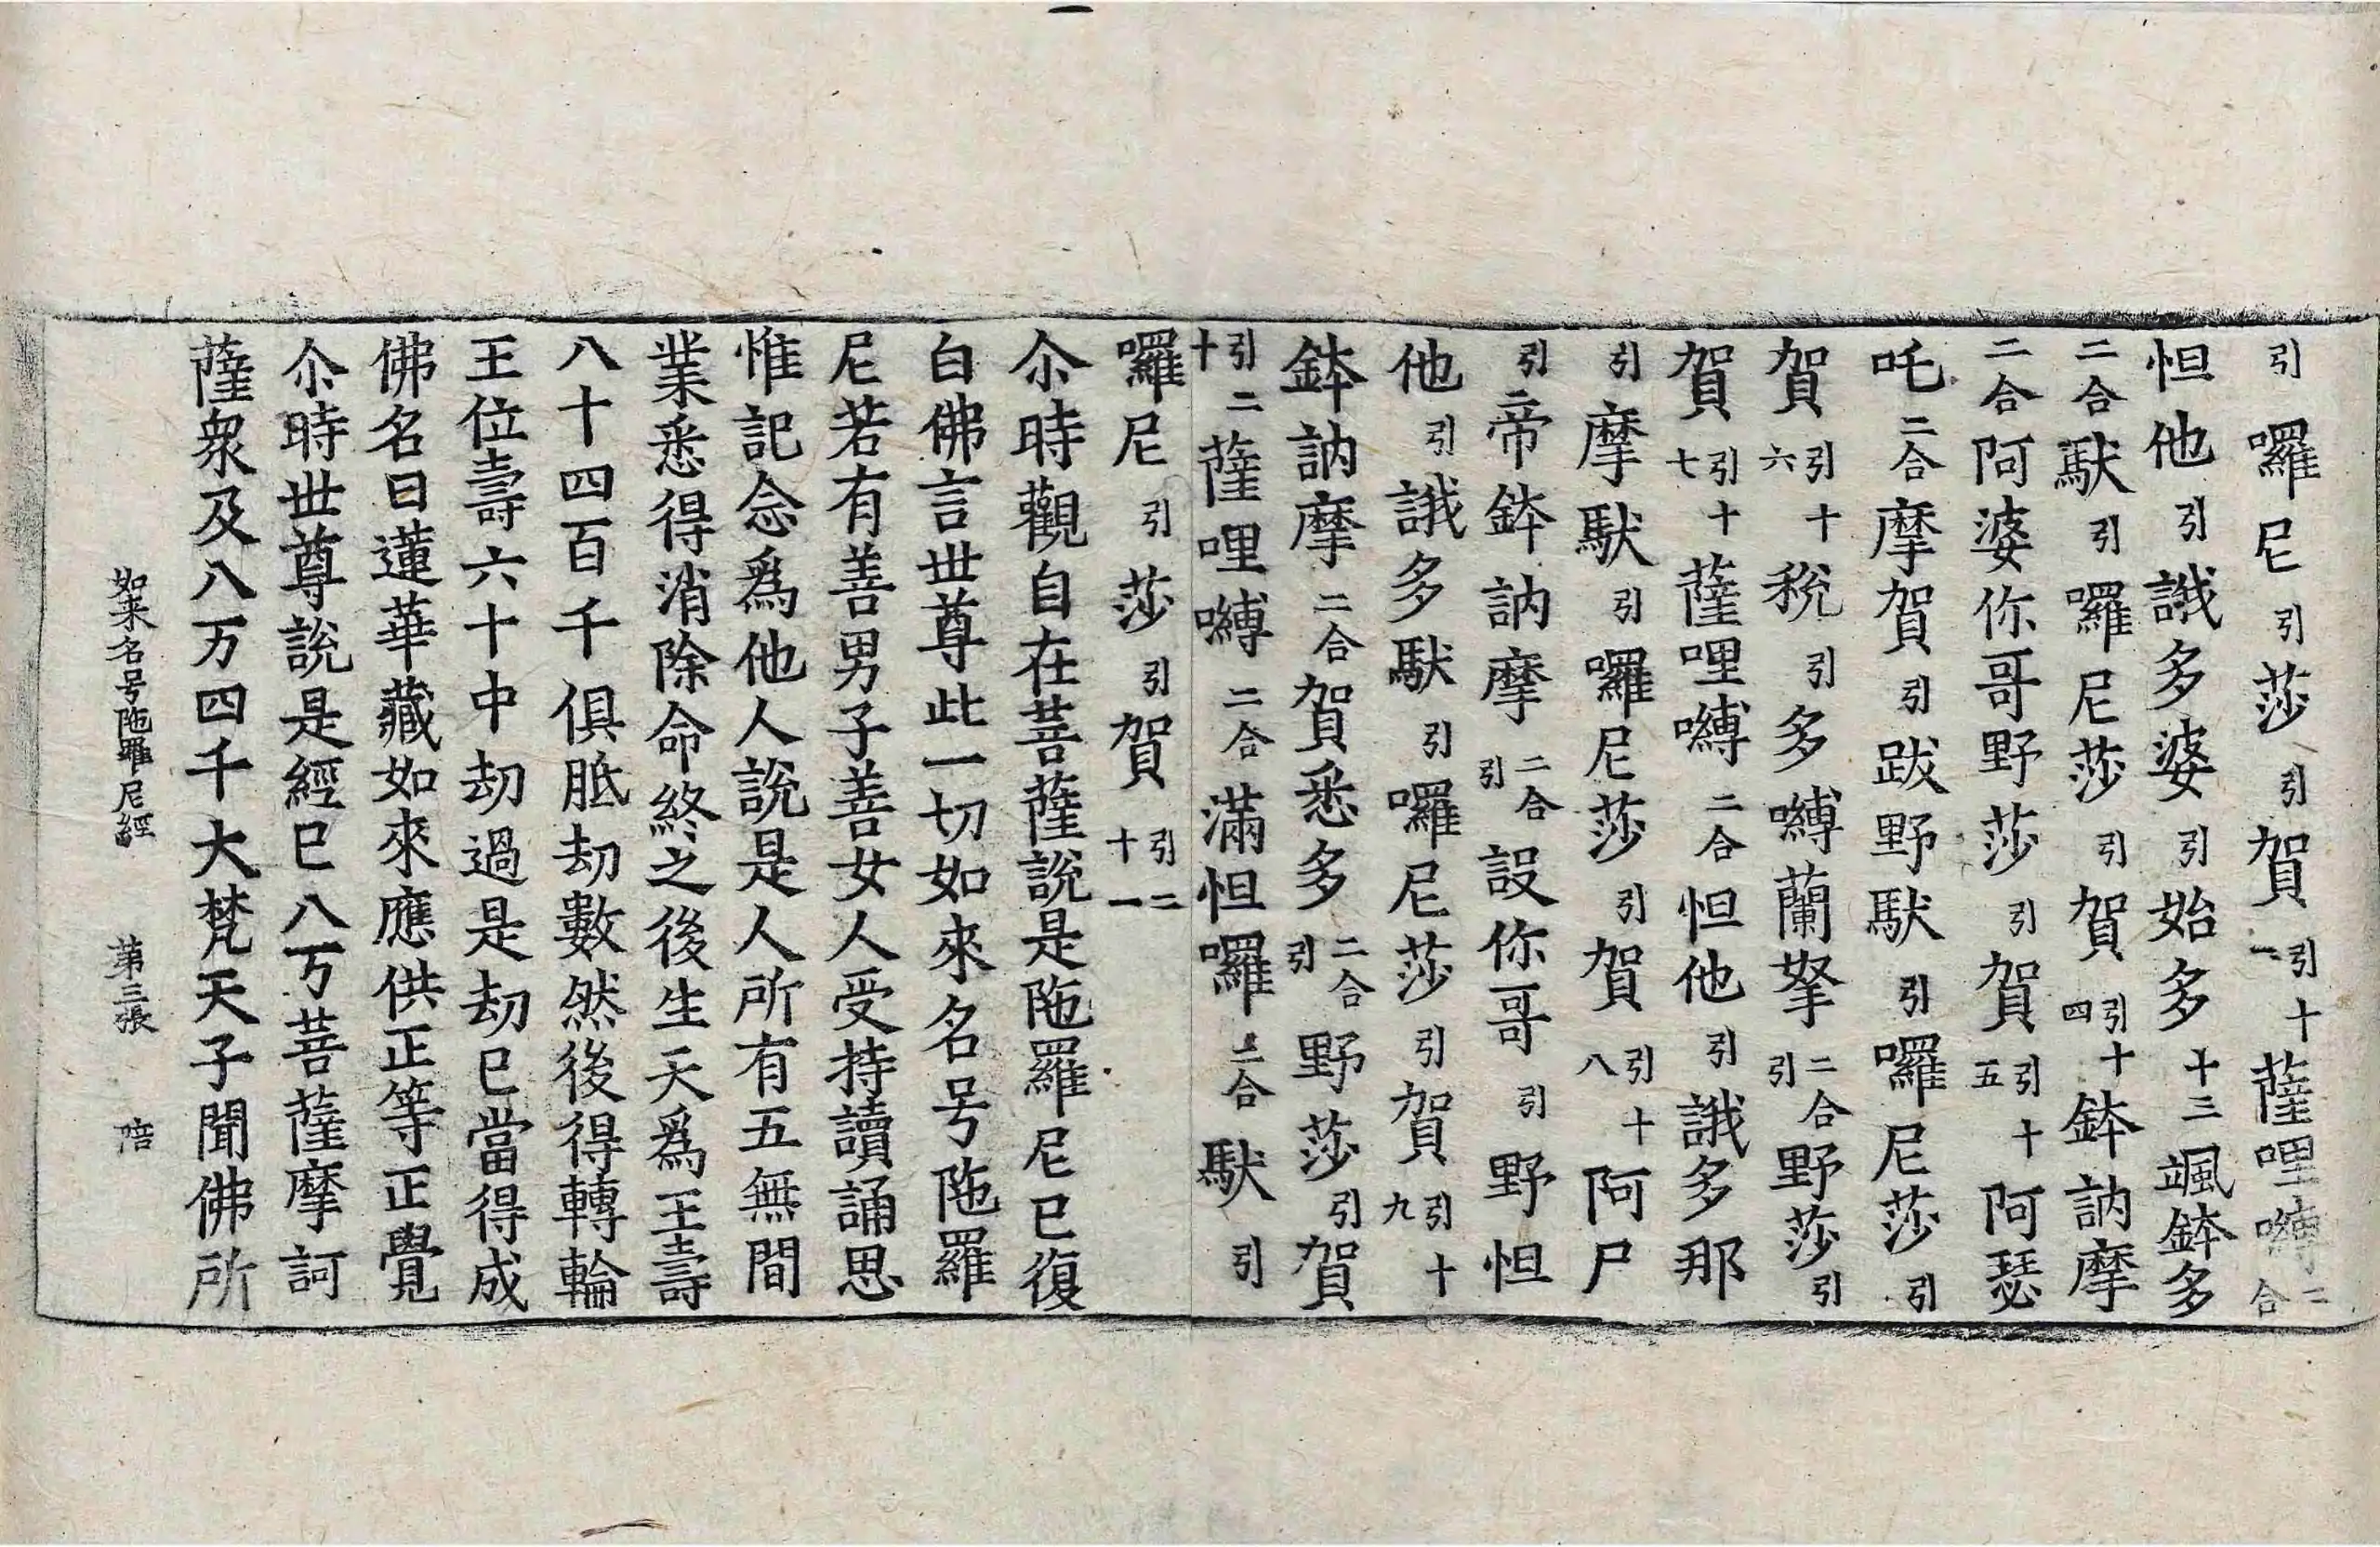 引囉尼引莎引賀引十一薩哩嚩二合
怛他引誐多婆引始多十三颯鉢多
二合馱引囉尼莎引賀引十四鉢訥摩
二合阿婆你哥野莎引賀引十五阿瑟
吒二合摩賀引跋野馱引囉尼莎引
賀引十六稅引多嚩蘭拏二合引野莎引
賀引十七薩哩嚩二合怛他引誐多那
引摩馱引囉尼莎引賀引十八阿尸
引帝鉢訥摩二合引設你哥引野怛
他引誐多馱引囉尼莎引賀引十九
鉢訥摩二合賀悉多二合引野莎引賀
引二十薩哩嚩二合滿怛囉二合馱引
囉尼引莎引賀引二十一
尒時觀自在菩薩說是陁羅尼已復
白佛言世尊此一切如來名号陁羅
尼若有善男子善女人受持讀誦思
惟記念爲他人說是人所有五無間
業悉得消除命終之後生天爲王壽
八十四百千俱胝劫數然後得轉輪
王位壽六十中劫過是劫已當得成
佛名曰蓮華藏如來應供正等正覺
尒時世尊說是經已八万菩薩摩訶
薩衆及八万四千大梵天子聞佛所
如来名号陁羅尼經 第三張